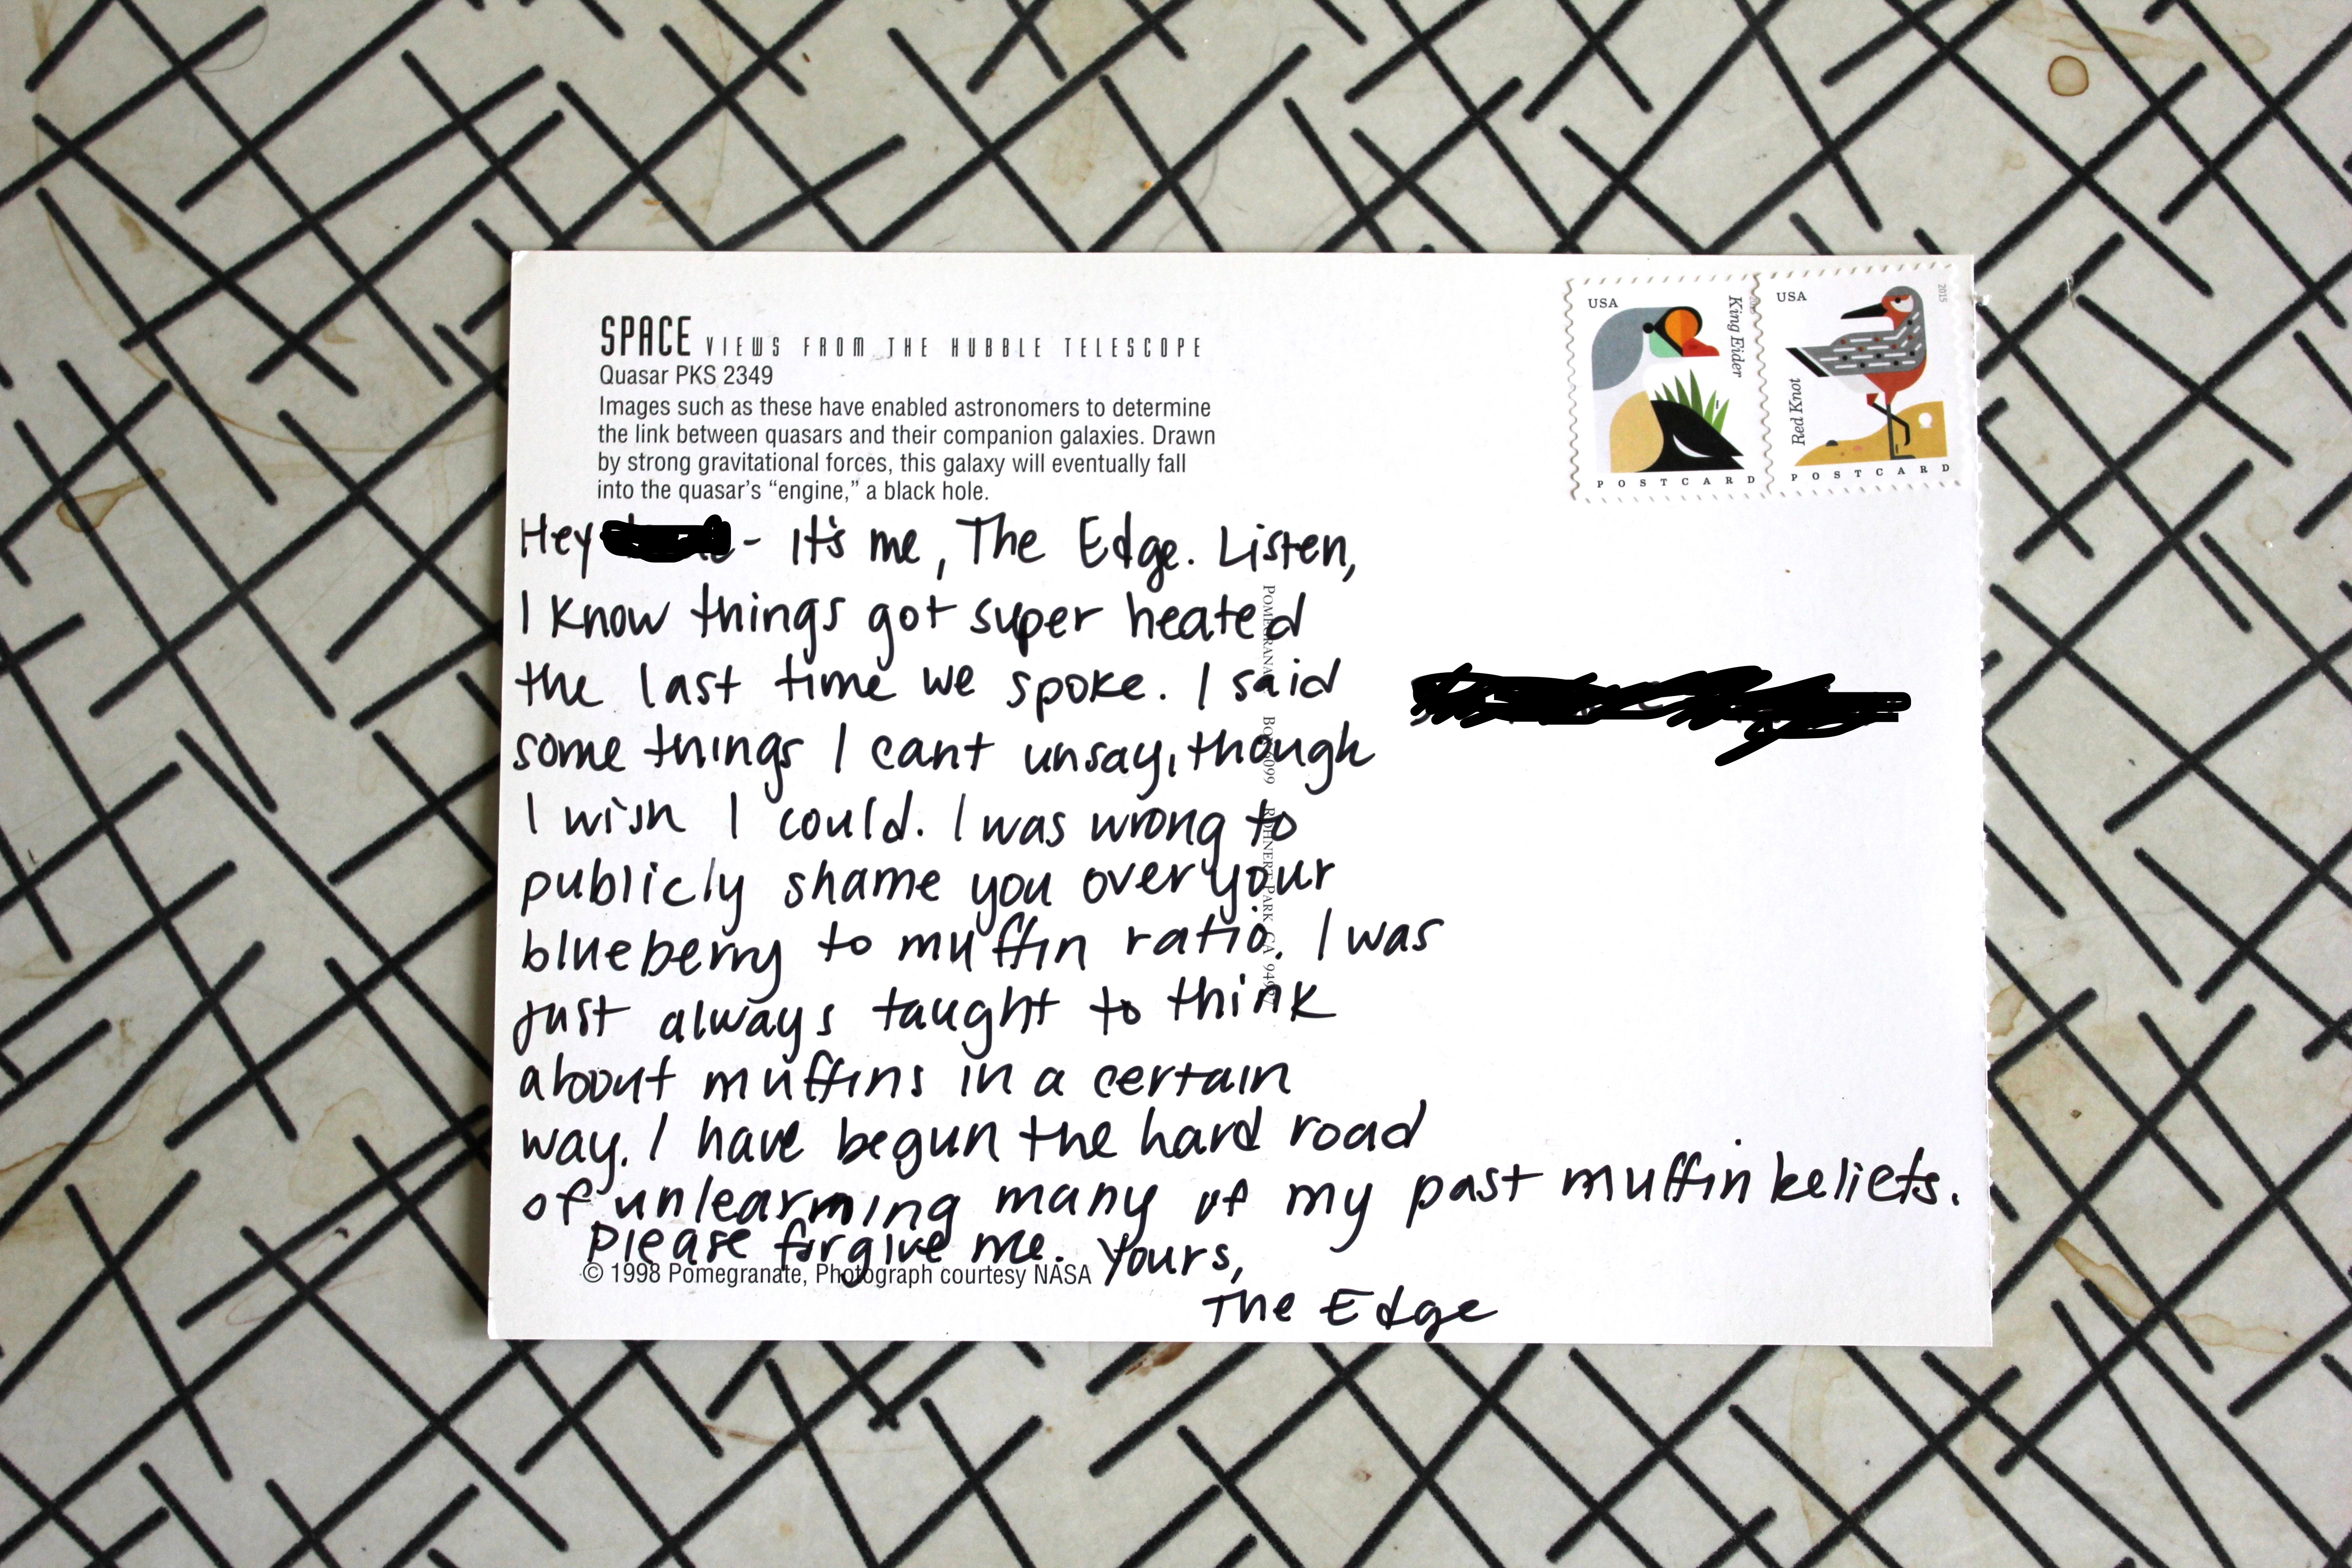 SPACE VIEWS FROM THE HUBBLE TELESCOPE
Quasar PKS 2349
Images such as these have enabled astronomers to determine
the link between quasars and their companion galaxies. Drawn
by strong gravitational forces, this galaxy will eventually fall
into the quasar's “engine,” a black hole.
USA
King Eider
POSTCARD
USA
2015
Red Knot
POSTCARD
Hey - It's me, The Edge. Listen,
I know things got super heated
the last time we spoke. I said
some things I cant unsay, though
I wish I could. I was wrong to
publicly shame you over your
blueberry to muffin ratio. I was
just always taught to think
about muffins in a certain
way. I have begun the hard road
of unlearning many of my past muffin beliefs.
Please forgive me. Yours,
The Edge
POMEGRANATE BOX 6099 ROHNERT PARK CA
© 1998 Pomegranate, Photograph courtesy NASA